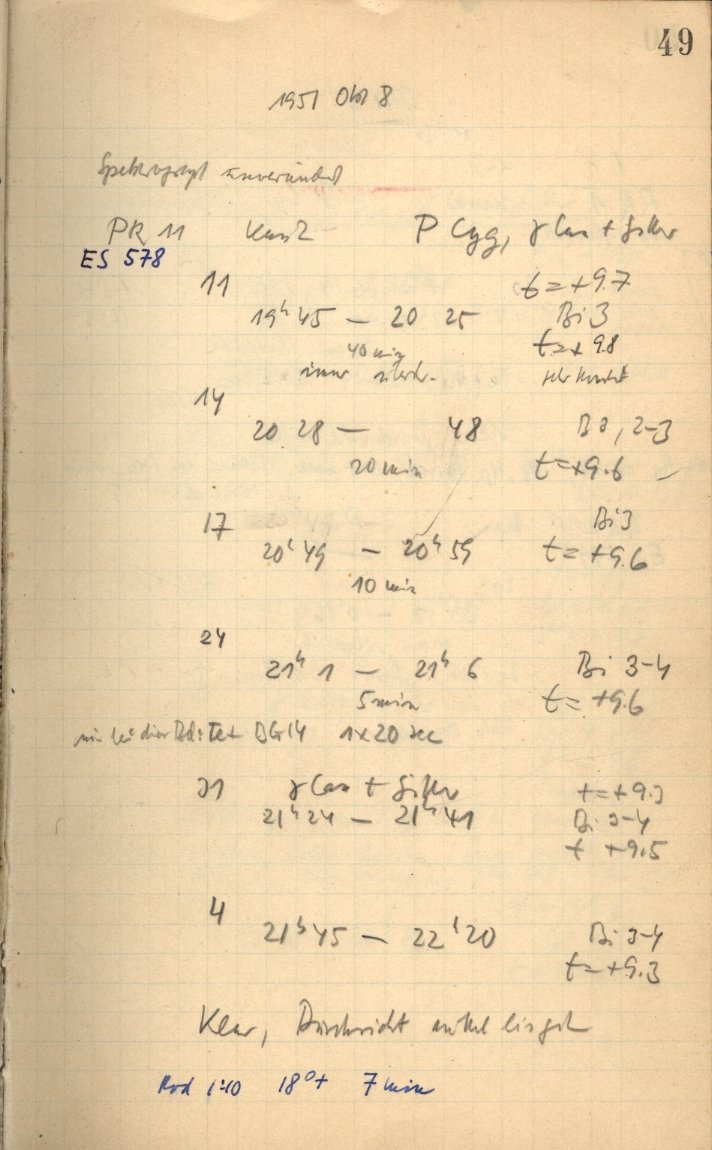 49
1951 Okt 8
Spektrograph unverändert
PR 11 P Cyg, γ Cas + Filter
ES 578
11 t = +9.7
19ʰ 45 — 20 25 Bi 3
40 min t = + 9.8
immer
14
20 28 — 48 Bi, 2-3
20 min t = +9.6
17 Bi 3
20ʰ 49 — 20ʰ 59 t = +9.6
10 min
24
21ʰ 1 — 21ʰ 6 Bi 3-4
5 min t = +9.6
BG 14 1x20 sec
γ Cas + Filter
21ʰ 24 — 21ʰ 41 Bi 3-4
t +9.5
4
21ʰ 45 — 22ʰ 20 Bi 3-4
t = +9.3
Klar, Durchsicht
Rod 1:10 18°+ 7 min